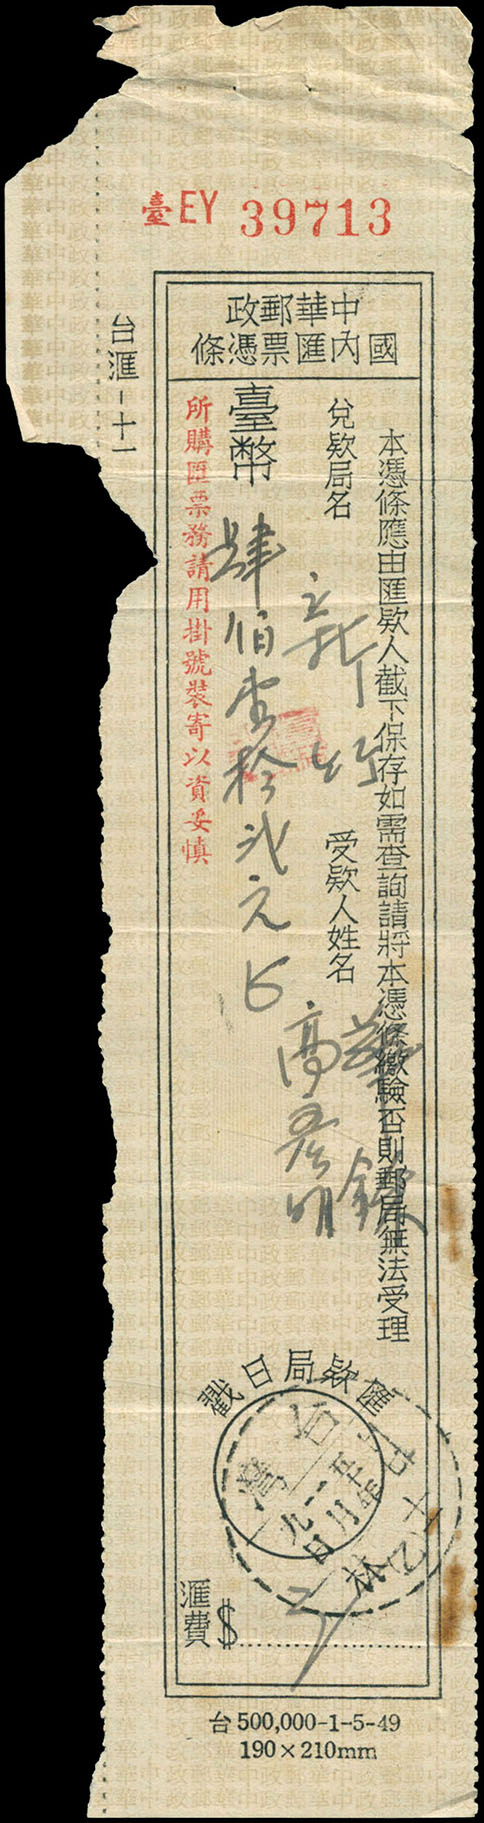 臺EY 39713
台滙-十一
中華郵政
國內匯票憑條
本憑條應由匯欵人截下保存如需查詢請將本憑條繳驗否則郵局無法受理
兌欵局名
新竹
受欵人姓名
高彥明
臺幣
肆佰壹拾弍元
所購匯票務請用掛號裝寄以資妥慎
匯欵局日戳
台灣
五十年
一月
九日
滙費 $
台500,000-1-5-49
190×210mm